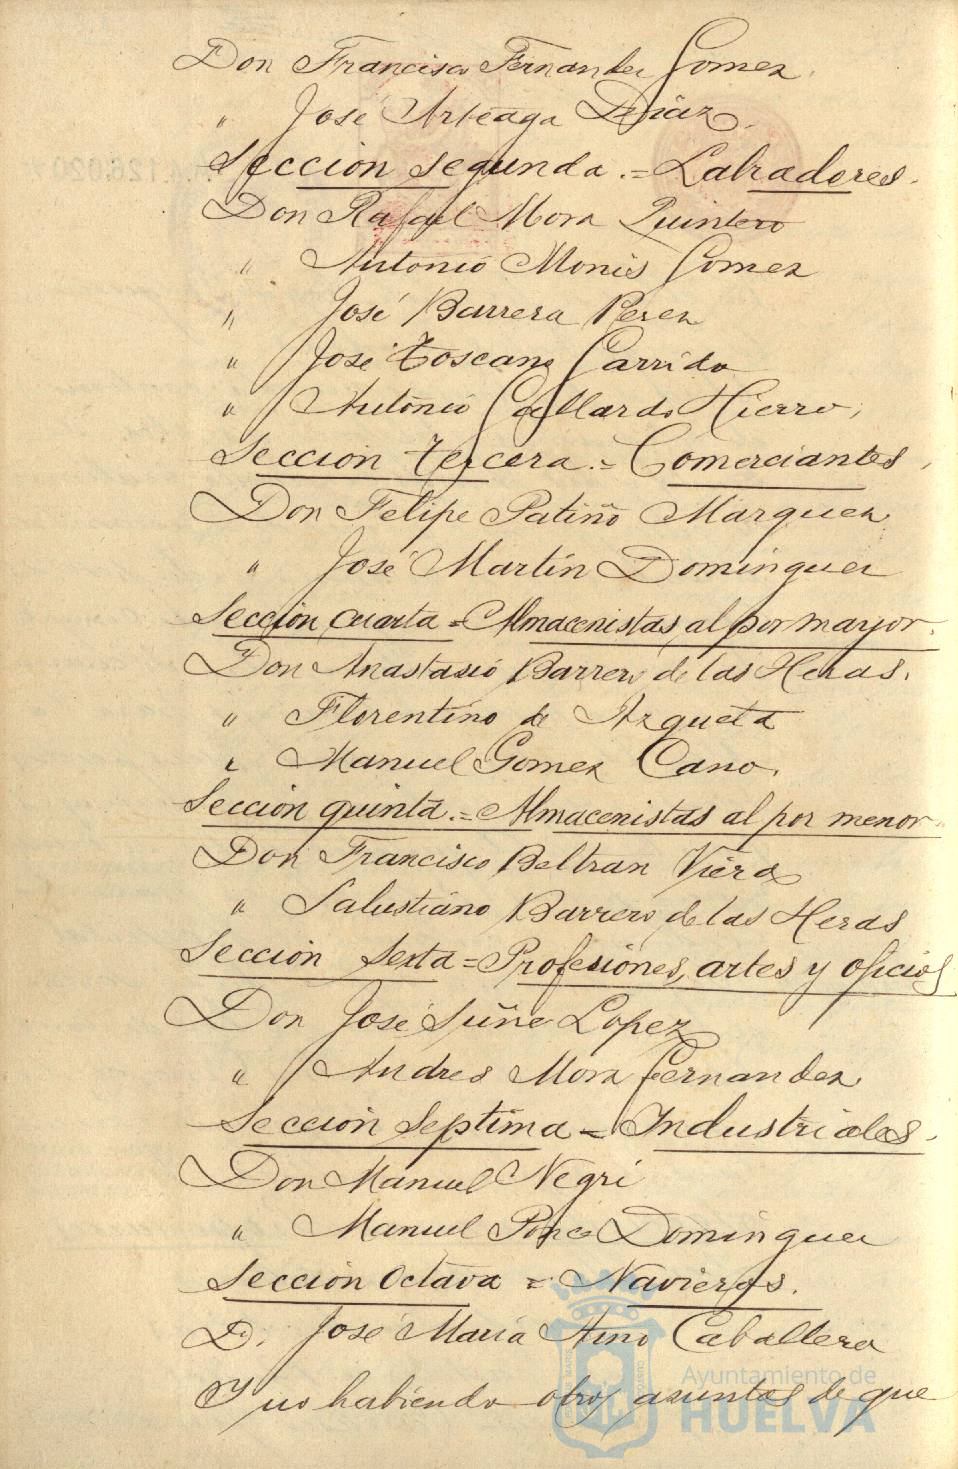 Don Francisco Fernandez Gomez.
" José Arteaga Diaz.
Sección segunda.=Labradores.
Don Rafael Mora Quintero
" Antonio Monis Gomez
" José Barrera Perez
" José Toscano Garrido
" Antonio Gallardo Hierro,
Sección tercera.=Comerciantes,
Don Felipe Patiño Marquez
" José Martin Dominguez
Sección cuarta=Almacenistas al por mayor.
Don Anastasio Barrero de las Heras.
" Florentino de Azqueta
" Manuel Gomez Cano.
Sección quinta.=Almacenistas al por menor=
Don Francisco Beltran Viera
" Salustiano Barrero de las Heras
Sección Sexta=Profesiones, artes y oficios
Don José Suñe Lopez
" Andres Mora Fernandez
Sección Septima=Industriales.
Don Manuel Negri
" Manuel Ponce Dominguez
Sección Octava = Navieros.
D. José Maria Amo Caballero
Y no habiendo otros asuntos de que
Ayuntamiento de
HUELVA